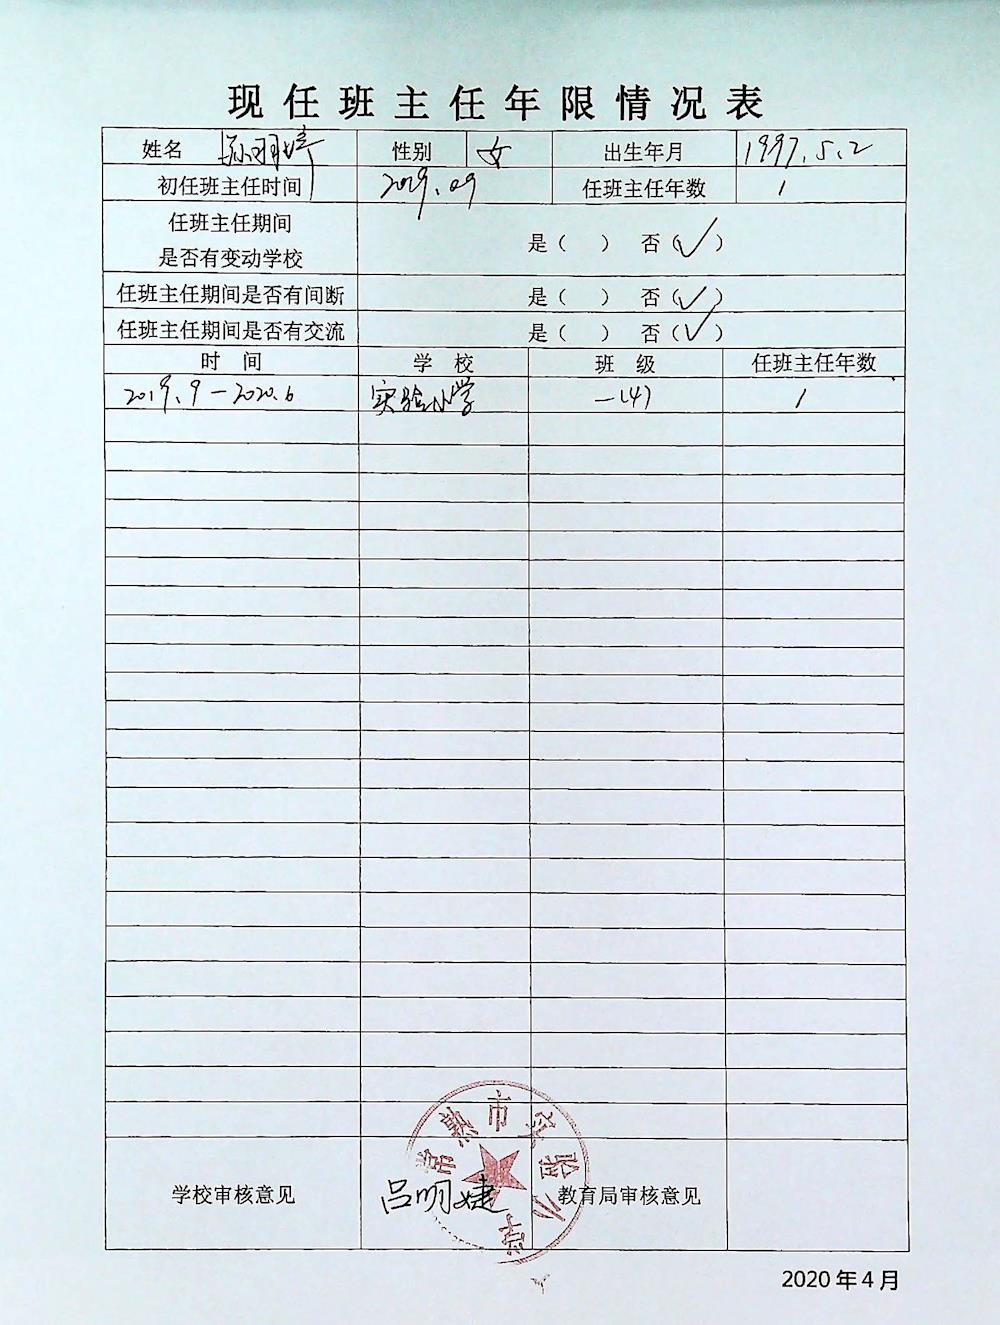 现任班主任年限情况表
姓名 孙羽婷 性别 女 出生年月 1997.5.2
初任班主任时间 2019.09 任班主任年数 1
任班主任期间
是否有变动学校 是（ ） 否（✓）
任班主任期间是否有间断 是（ ） 否（✓）
任班主任期间是否有交流 是（ ） 否（✓）
时 间 学 校 班 级 任班主任年数
2019.9-2020.6 实验小学 一(4) 1
常熟市实验小学
学校审核意见 吕明婕 教育局审核意见
2020年4月